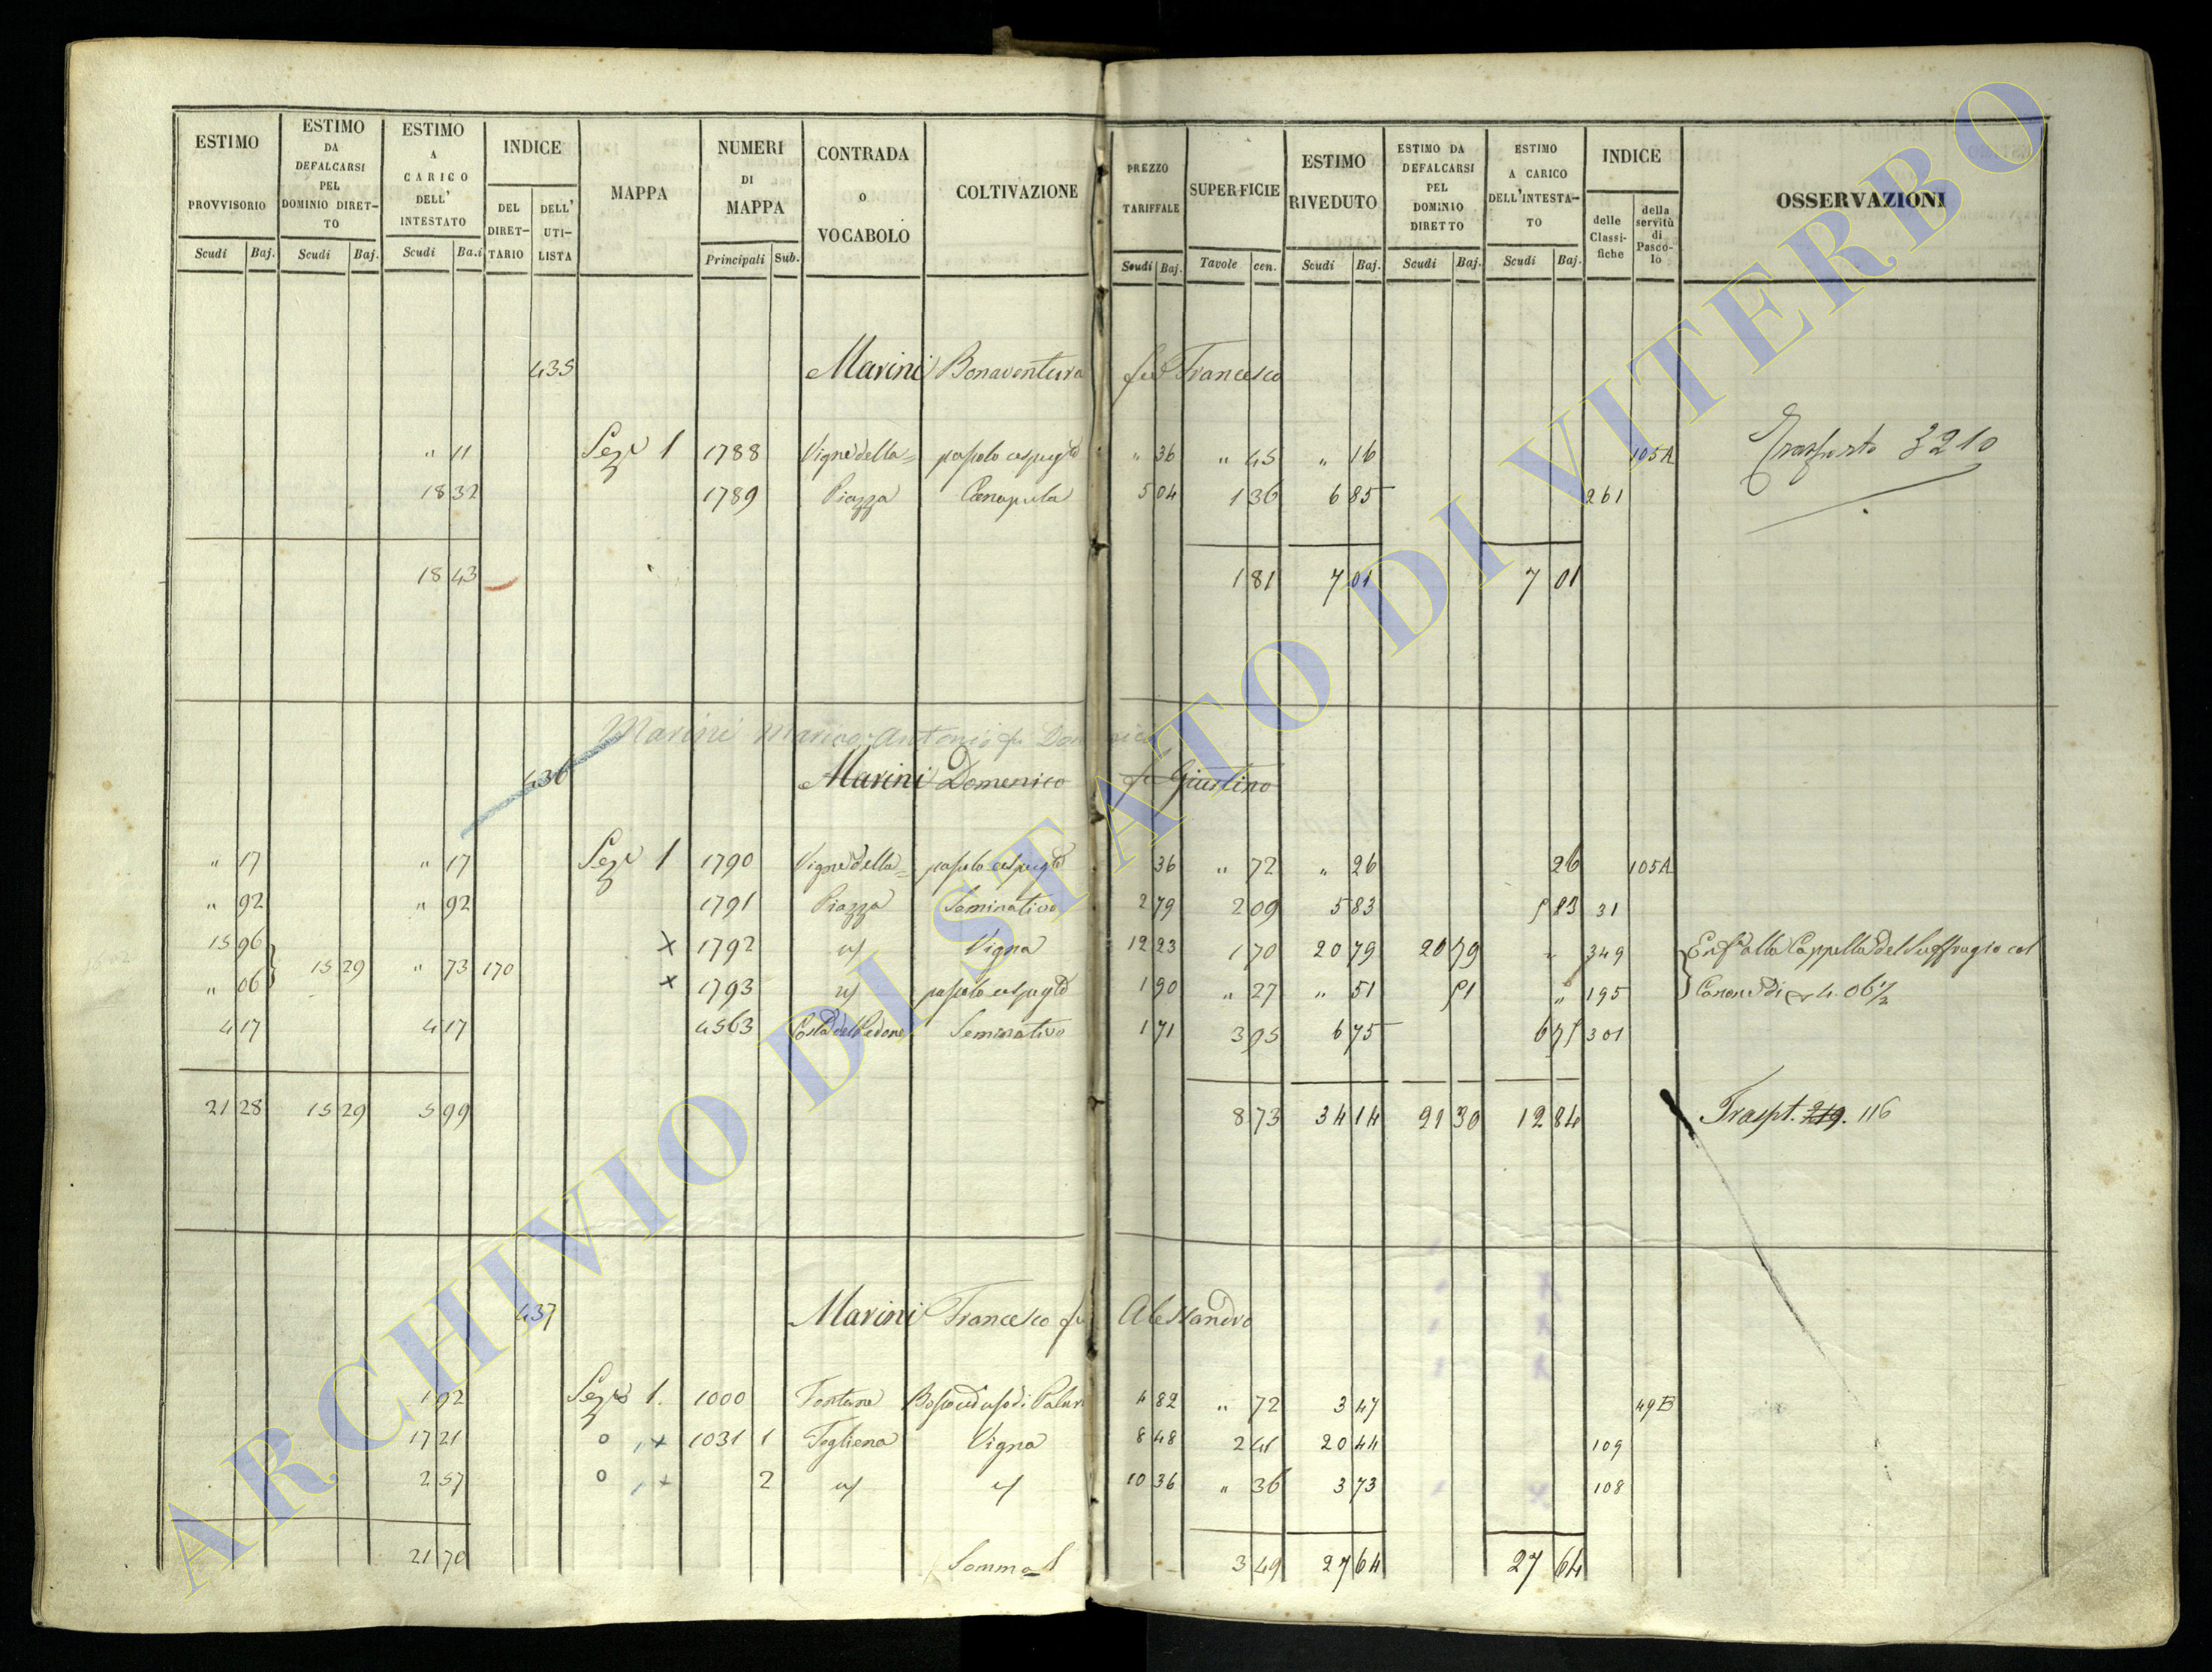 ESTIMO PROVVISORIO Scudi Baj.
ESTIMO DA DEFALCARSI PEL DOMINIO DIRETTO Scudi Baj.
ESTIMO A CARICO DELL' INTESTATO Scudi Ba.i
INDICE DEL DIRETTARIO DELL' UTILISTA
MAPPA
NUMERI DI MAPPA Principali Sub.
CONTRADA o VOCABOLO
COLTIVAZIONE
PREZZO TARIFFALE Scudi Baj.
SUPERFICIE Tavole cen.
ESTIMO RIVEDUTO Scudi Baj.
ESTIMO DA DEFALCARSI PEL DOMINIO DIRETTO Scudi Baj.
ESTIMO A CARICO DELL'INTESTATO Scudi Baj.
INDICE delle Classifiche della servitù di Pascolo
OSSERVAZIONI
435 Marini Bonaventura fu Francesco
" 11 Sez.e 1 1788 Vigne della= pascolo cespugto " 36 " 45 " 16 105A Trasporto 3210
18 32 1789 Piazza Canapula 5 04 1 36 6 85 261
18 43 1 81 7 01 7 01
Marini Marco Antonio fu Domenico
436 Marini Domenico fu Giustino
" 17 " 17 Sez.e 1 1790 Vigne della= pascolo cespugto 36 " 72 " 26 26 105A
" 92 " 92 1791 Piazza Seminativo 2 79 2 09 5 83 5 83 31
15 96 x 1792 Vigna 12 23 1 70 20 79 20 79 " 349 Enfa alla Cappella del Suffragio col
" 06 15 29 " 73 170 x 1793 pascolo cespugto 1 90 " 27 " 51 51 " 195 Canone di 4. 06 1/2
4 17 4 17 4563 Costa del Pedone Seminativo 1 71 3 95 6 75 6 75 301
21 28 15 29 5 99 8 73 34 14 21 30 12 84 Traspt. 219. 116
437 Marini Francesco fu Alessandro
1 92 Sez.e 1. 1000 Fontana 4 82 " 72 3 47 49B
17 21 o x 1031 1 Togliena Vigna 8 48 2 41 20 44 109
2 57 o x 2 10 36 " 36 3 73 108
21 70 Somma 3 49 27 64 27 64
ARCHIVIO DI STATO DI VITERBO